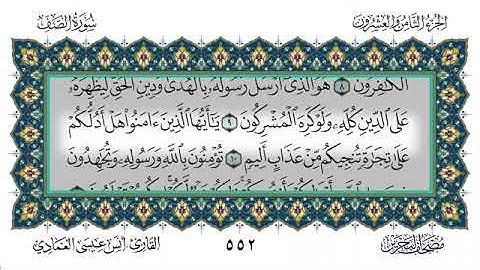 الجزء الثامن والعشرون
سورة الصف
الكفرون ٨ هو الذى أرسل رسوله بالهدى ودين الحق ليظهره
على الدين كله ولو كره المشركون ٩ يأيها الذين ءامنوا هل أدلكم
على تجرة تنجيكم من عذاب أليم ١٠ تؤمنون بالله ورسوله وتجهدون
القارئ أنس عيسى العمادي
٥٥٢